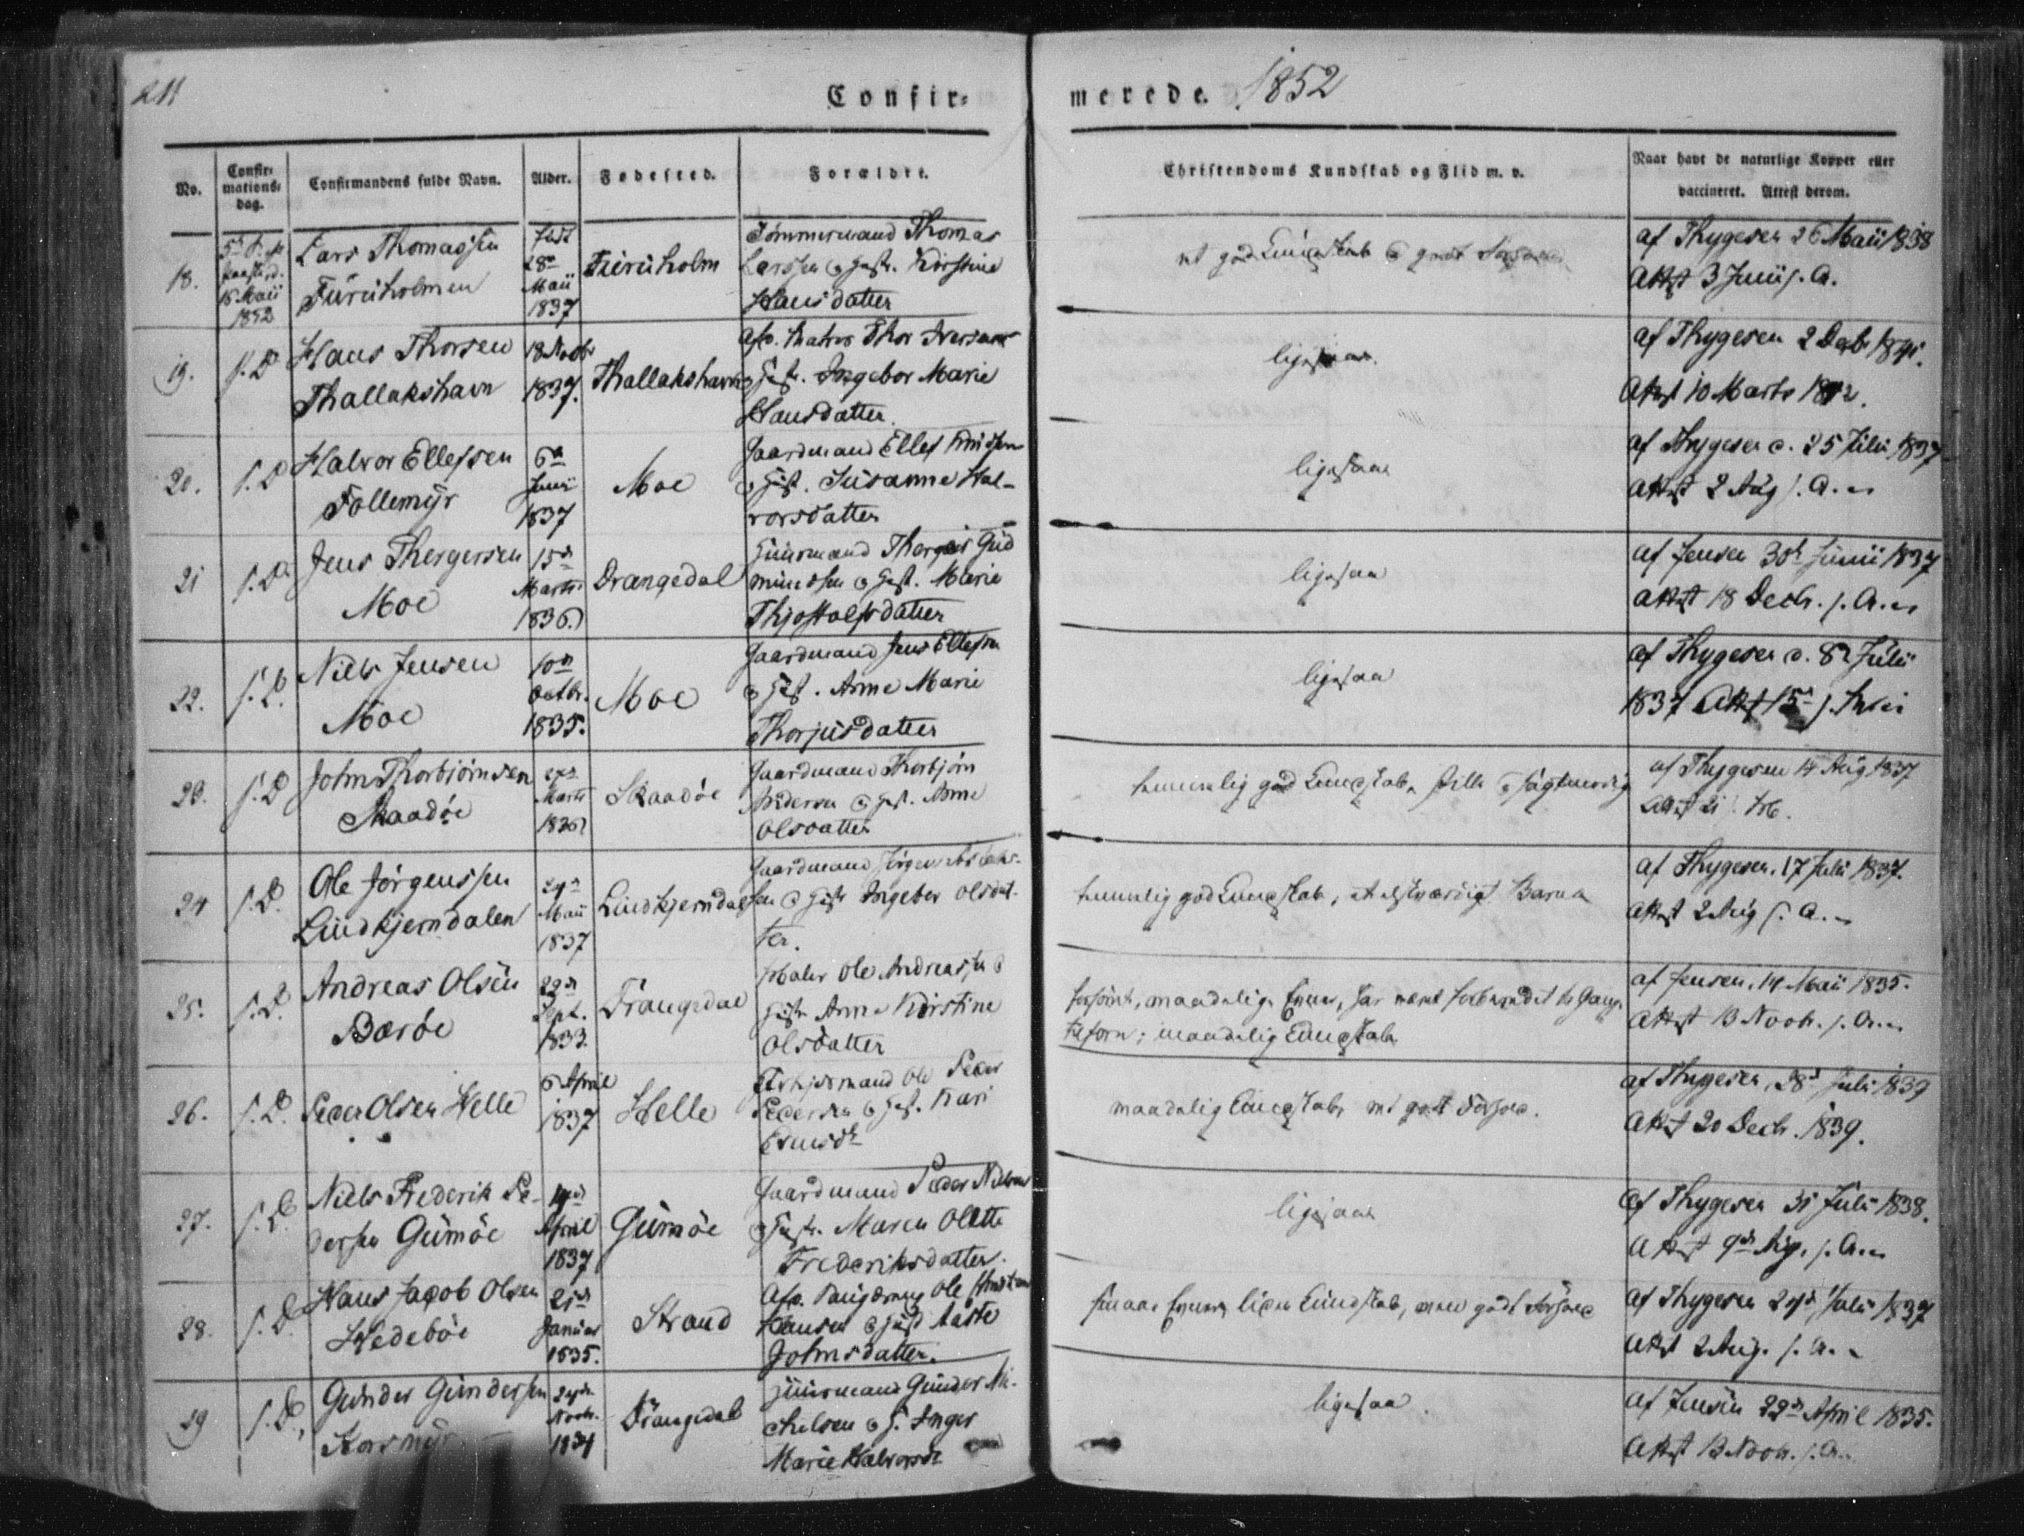 211
Confir-
merede. 1852
No.
Confir-
mations-
dag.
Confirmandens fulde Navn.
Alder.
Fødested.
Forældre.
Christendoms Kundskab og Flid m. v.
Naar havt de naturlige Kopper eller
vaccineret. Attest derom.
18.
16 Maii
1852
Lars Thomassen
Furuholmen
født
28de
Maii
1837
Furuholm
Tømmermand Thomas
Larssen og Hustr. Kirstine
Hansdatter
et god Kundskab og godt Forhold
af Thygesen 26 Maii 1838
Attest 3 Junii s. A.
19.
s. D.
Hans Thorsen
Thallakshavn
18 Novbr
1837.
Thallakshavn
Afd. Matros Thor Iversen
og Hustr. Ingebor Marie
Hansdatter
ligesaa.
af Thygesen 2 Decb 1841.
Attest 10 Marts 1842.
20.
s. D.
Halvor Ellefsen
Follemyr
6te
Junii
1837
Moe
Gaardmand Ellef Knudsen
og Hust. Susanne Hal-
vorsdatter
ligesaa
af Thygesen d. 25 Julii 1837
Attest 2 Aug s. A.
21
s. D.
Jens Thergersen
Moe
15de
Marts
1836.
Drangedal
Huusmand Thergeis Gud
mundsen og Hust. Marie
Thjostolfsdatter
ligesaa
af Jensen 30te Junii 1837
Attest 18 Decbr. s. A.
22.
s. D.
Niels Jensen
Moe
10de
Octbr.
1835.
Moe
Gaardmand Jens Ellefsen
og Hust. Anne Marie
Thorjusdatter
ligesaa
af Thygesen d. 8de Julii
1837 Attest 15de s.
23.
s. D.
John Thorbjørnsen
Skaadøe
27de
Marts
1836
Skaadøe
Gaardmand Thorbjørn
Andersen og Hust. Anne
Olsdatter
temmelig god Kundskab, stille og sagtmodig
af Thygesen 14 Aug 1837
Attest 21
24
s. D.
Ole Jørgenssen
Lindkjerndalen
24de
Maii
1837
Lindkjerndal
Gaardmand Jørgen Aslaks-
sen og Hustr Ingebor Olsdat-
ter.
temmelig god Kundskab, et elskværdigt Barn
af Thygesen 17 Julii 1837.
Attest 2 Aug s. A.
25.
s. D.
Andreas Olsen
Barøe
29de
Sept.
1833.
Drangedal
Ole Andreassen og
Hustr Anne Kirstine
Olsdatter
forsømt, maadelige Evner, har været forberedt to Gange
tilforn; maadelig Kundskab
af Jensen, 14 Maii 1835.
Attest 13 Novbr. s. A.
26.
s. D.
Peder Olsen Helle
6 April
1837
Helle
Arbejdsmand Ole Peder
Pedersen og Hust. Kari
maadelig Kundskab, et godt Forhold.
af Thygesen, 28de Julii 1839
Attest 20 Decbr. 1839.
27.
s. D.
Niels Frederik Pe-
dersen Gumøe
April
1837
Gumøe
Gaardmand Peder Nielsen
og Hustr. Maren Olette
Frederiksdatter.
ligesaa
af Thygesen 31 Julii 1838.
Attest 9de Aug. s. A.
28.
s. D.
Hans Jacob Olsen
Hedebøe
21de
Januar
1835.
Strand
Afd. Ole
Hansen og Hust Aaste
Johnsdatter.
smaae Evner, liden Kundskab, men godt Forhold
af Thygesen 24de Julii 1837
Attest 2 Aug. s. A.
29
s. D.
Gunder Gundersen
Korsmyr
24de
Novbr.
1834
Drangedal
Huusmand Gunder Mi-
chelsen og H. Inger
Marie Halvorsdr
ligesaa.
af Jensen 22de April 1835.
Attest 13 Novbr. s. A.